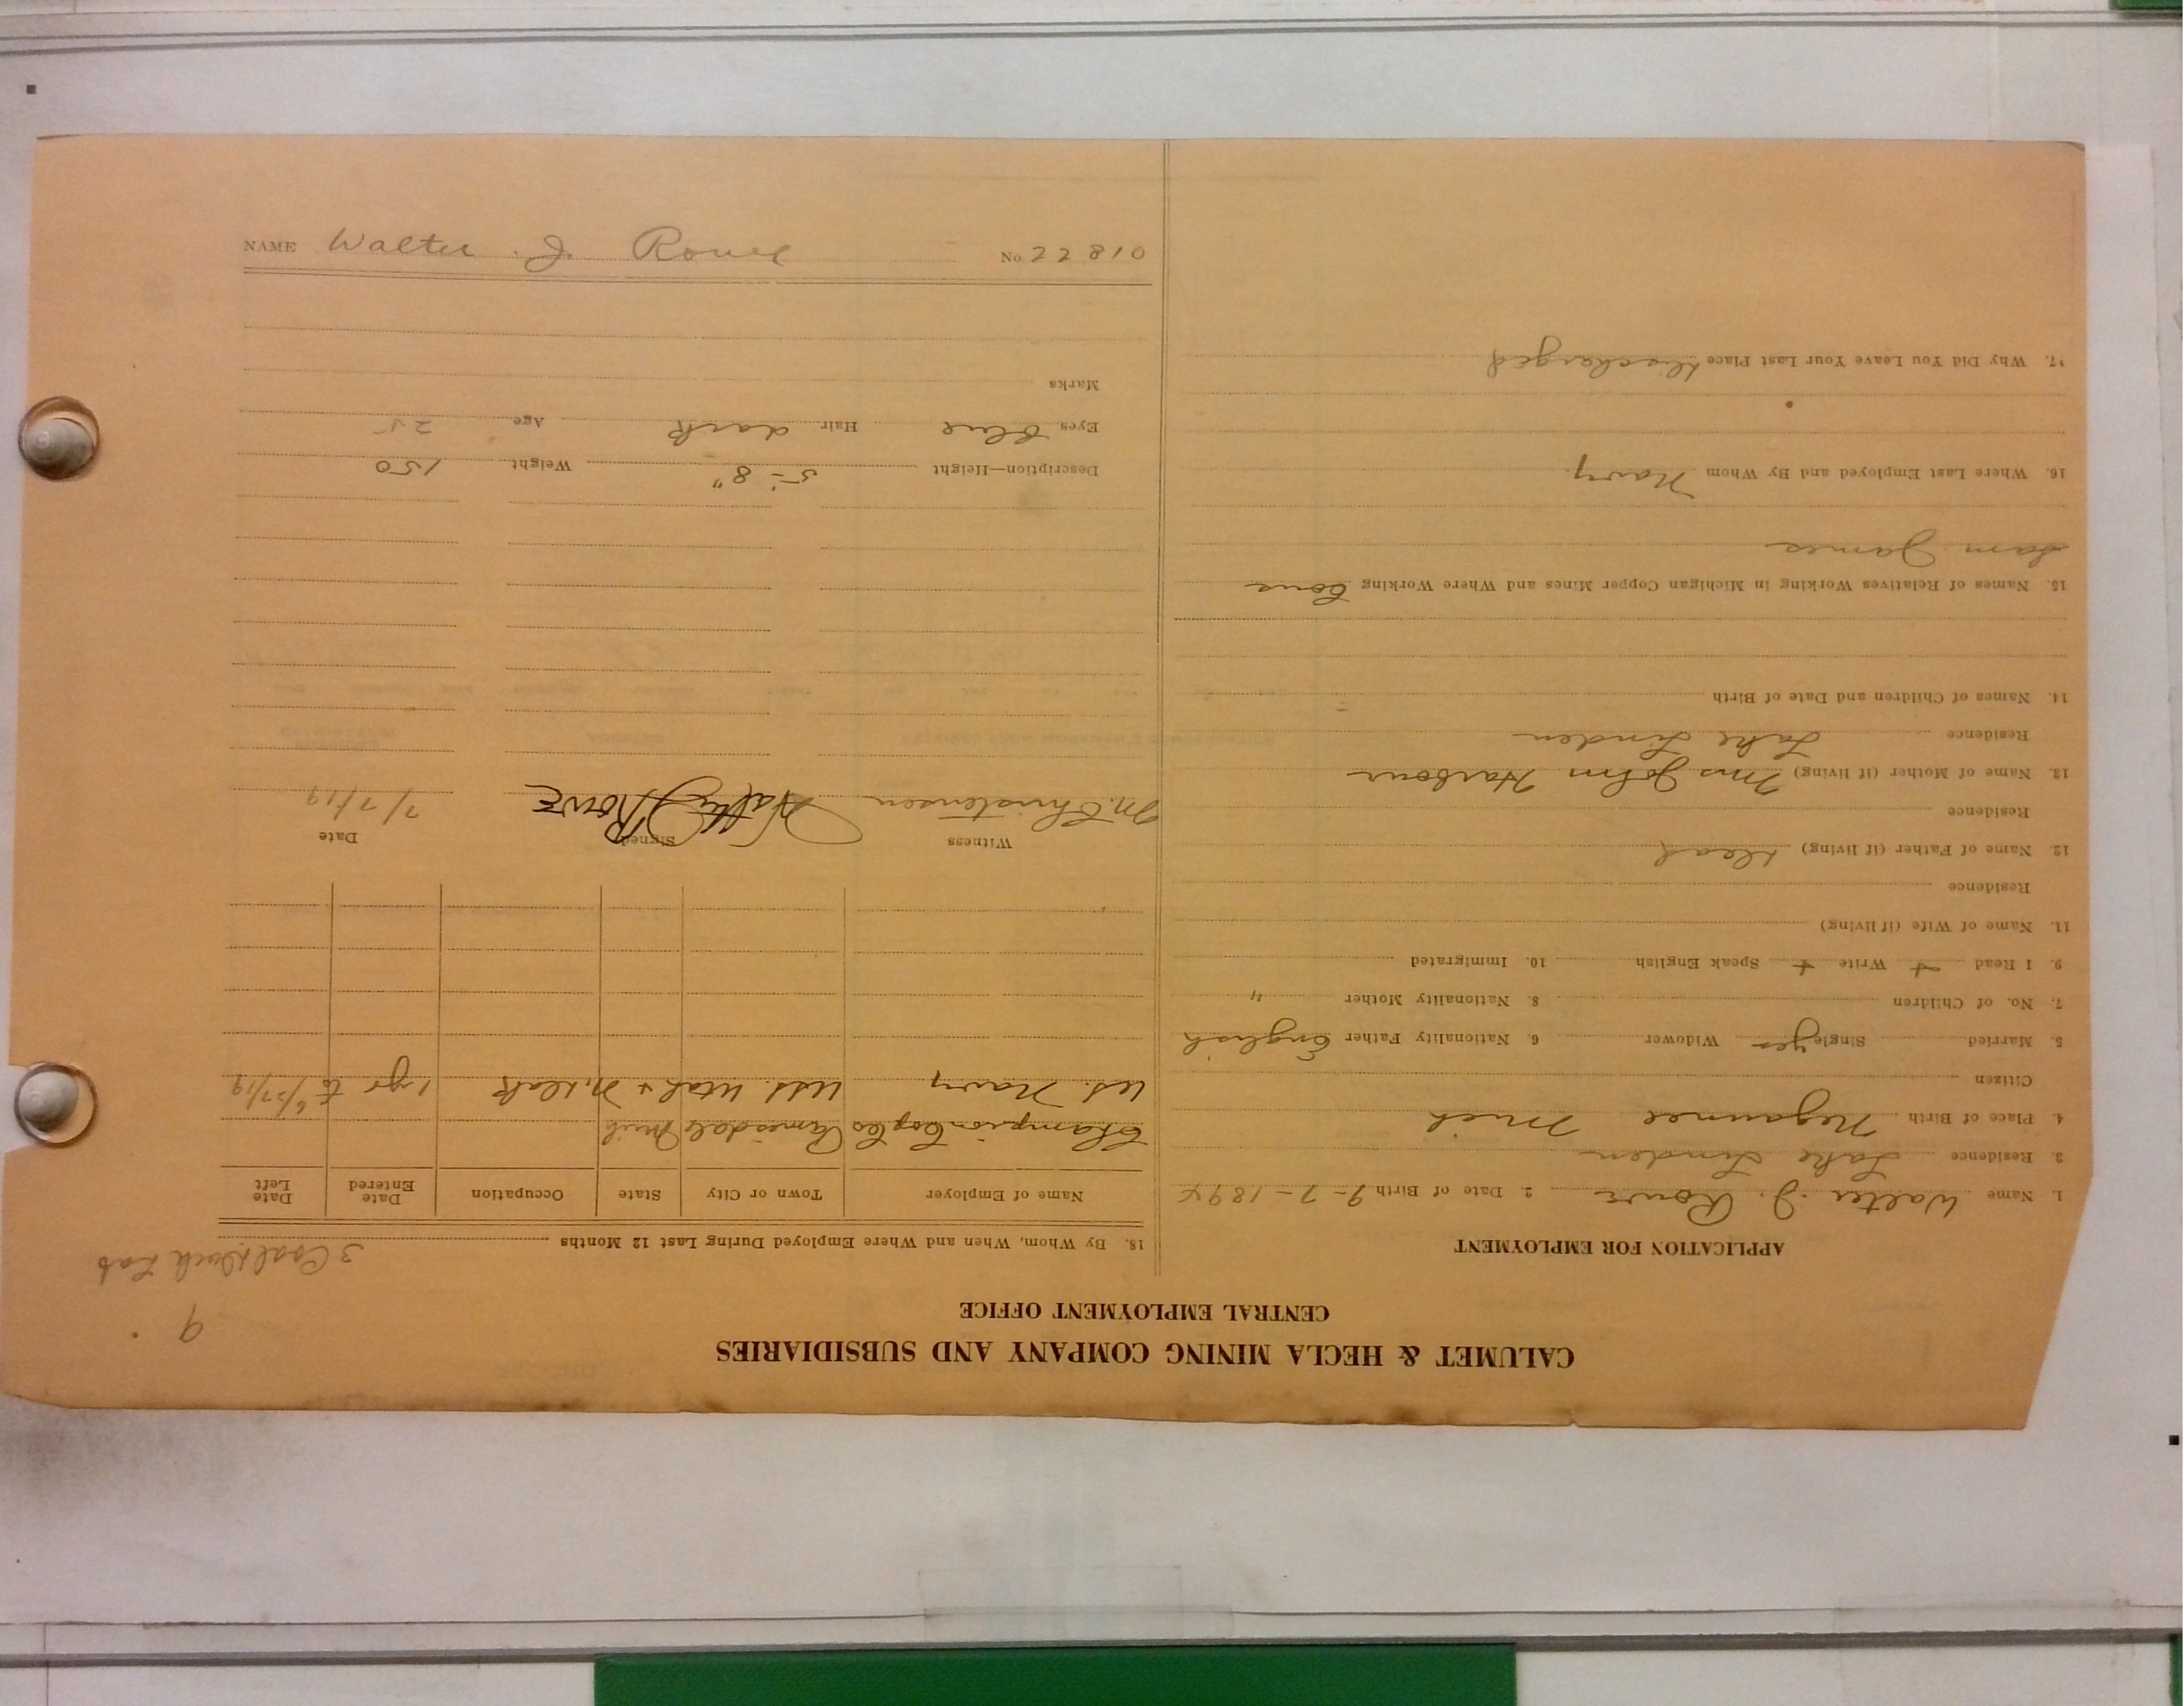 CALUMET & HECLA MINING COMPANY AND SUBSIDIARIES
CENTRAL EMPLOYMENT OFFICE
9
3 Coal Dock Lab
APPLICATION FOR EMPLOYMENT
1. Name Walter J. Rowe 2. Date of Birth 9-7-1894
3. Residence Lake Linden
4. Place of Birth Negaunee Mich
Citizen
5. Married Single yes Widower 6. Nationality Father English
7. No. of Children 8. Nationality Mother "
9. I Read + Write + Speak English 10. Immigrated
11. Name of Wife (if living)
Residence
12. Name of Father (if living) Dead
Residence
13. Name of Mother (if living) Mrs John Harbour
Residence Lake Linden
14. Names of Children and Date of Birth
15. Names of Relatives Working in Michigan Copper Mines and Where Working
Sam James
16. Where Last Employed and By Whom Navy
17. Why Did You Leave Your Last Place Discharged
18. By Whom, When and Where Employed During Last 12 Months
Name of Employer Town or City State Occupation Date Entered Date Left
Champion Mich
U.S. Navy USS. Utah + N. Dak 1 yr to 6/27/19
Witness Signed Date
M. Christensen Walter J Rowe 7/7/19
Description—Height 5-8" Weight 150
Eyes blue Hair dark Age 25
Marks
NAME Walter J. Rowe No. 22810